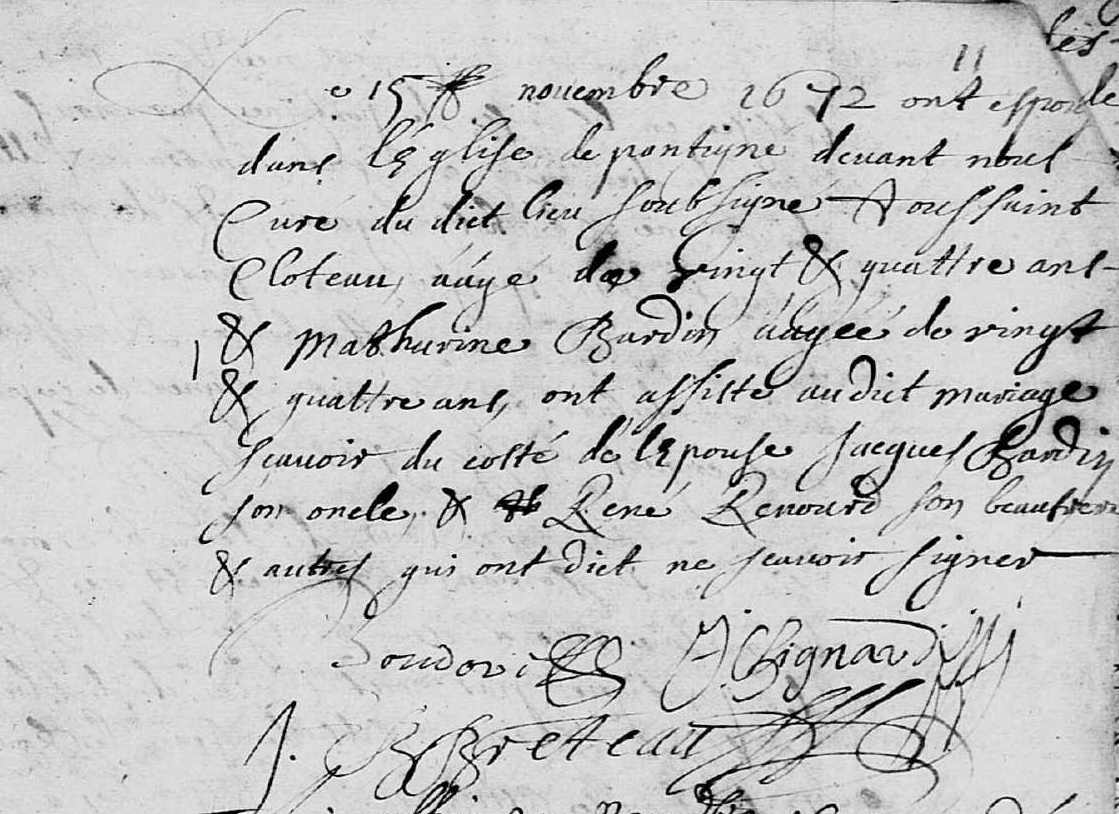 Le 15 novembre 1672 ont espousé
dans l'Eglise de pontigné devant nous
Curé du dict lieu soubsigné Toussaint
Cloteau, aagé de vingt & quattre ans
& Mathurine Bardin aagéé de vingt
& quattre ans, ont assisté audict mariage
scavoir du costé de l'Epouse Jacques Bardin
son oncle, & René Renourd son beaufrere
& autres qui ont dict ne scavoir signer
J. Bignard
J. Breteau